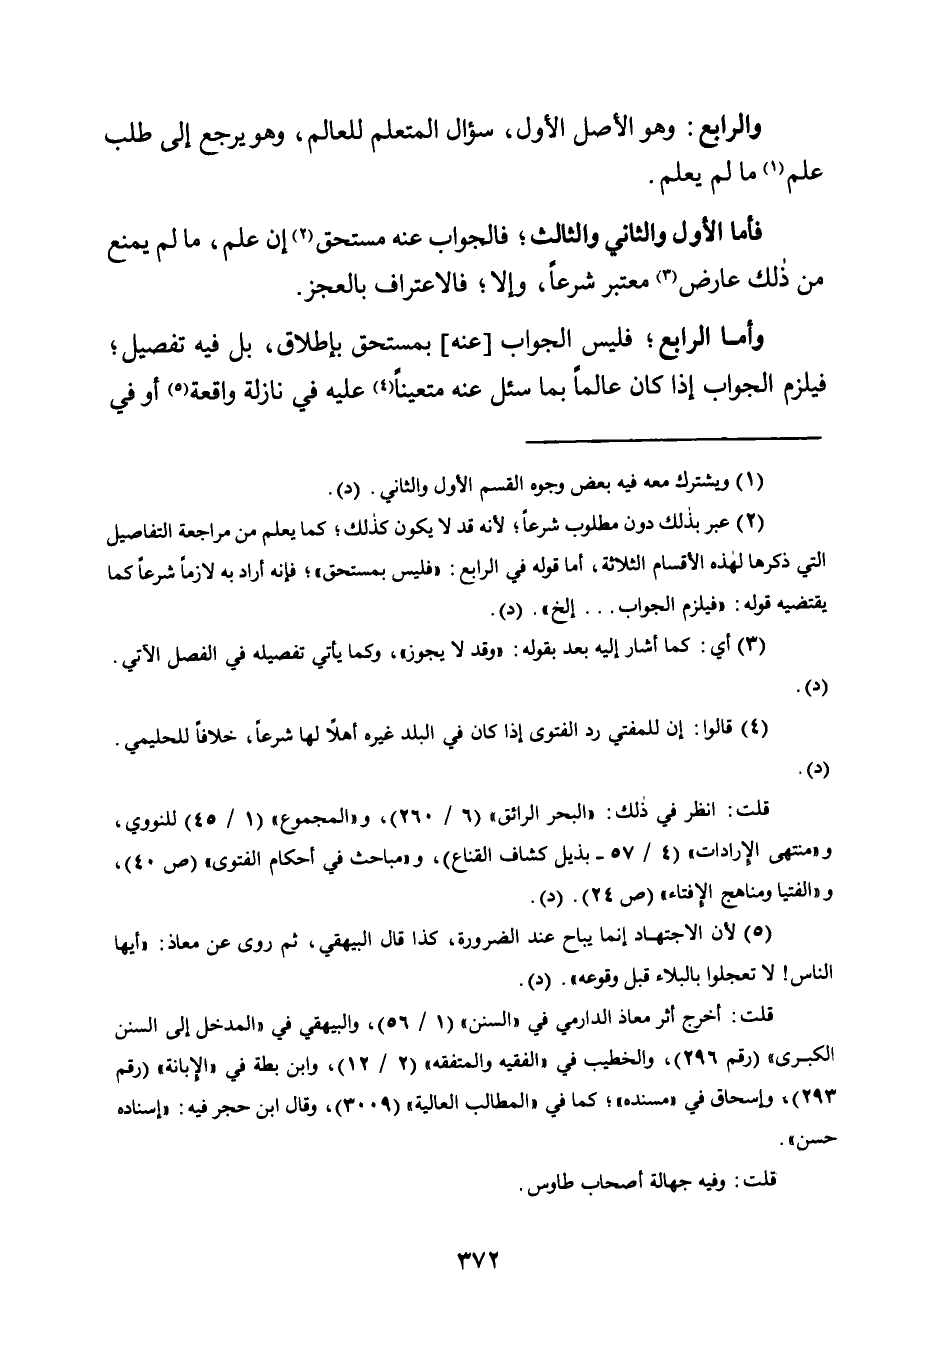 والرابع: وهو الأصل الأول، سؤال المتعلم للعالم، وهو يرجع إلى طلب
علم(١) ما لم يعلم.
فأما الأول والثاني والثالث؛ فالجواب عنه مستحق(٢) إن علم، ما لم يمنع
من ذٰلك عارض(٣) معتبر شرعاً، وإلا؛ فالاعتراف بالعجز.
وأما الرابع؛ فليس الجواب [عنه] بمستحق بإطلاق، بل فيه تفصيل؛
فيلزم الجواب إذا كان عالماً بما سئل عنه متعيناً(٤) عليه في نازلة واقعة(٥) أو في
(١) ويشترك معه فيه بعض وجوه القسم الأول والثاني. (د).
(٢) عبر بذٰلك دون مطلوب شرعاً؛ لأنه قد لا يكون كذٰلك؛ كما يعلم من مراجعة التفاصيل
التي ذكرها لهٰذه الأقسام الثلاثة، أما قوله في الرابع: «فليس بمستحق»؛ فإنه أراد به لازماً شرعاً كما
يقتضيه قوله: «فيلزم الجواب... إلخ». (د).
(٣) أي: كما أشار إليه بعد بقوله: «وقد لا يجوز»، وكما يأتي تفصيله في الفصل الآتي.
(د).
(٤) قالوا: إن للمفتي رد الفتوى إذا كان في البلد غيره أهلاً لها شرعاً، خلافاً للحليمي.
(د).
قلت: انظر في ذٰلك: «البحر الرائق» (٦ / ٢٦٠)، و«المجموع» (١ / ٤٥) للنووي،
و«منتهى الإرادات» (٤ / ٥٧ ـ بذيل كشاف القناع)، و«مباحث في أحكام الفتوى» (ص ٤٠)،
و«الفتيا ومناهج الإفتاء» (ص ٢٤). (د).
(٥) لأن الاجتهاد إنما يباح عند الضرورة، كذا قال البيهقي، ثم روى عن معاذ: «أيها
الناس! لا تعجلوا بالبلاء قبل وقوعه». (د).
قلت: أخرج أثر معاذ الدارمي في «السنن» (١ / ٥٦)، والبيهقي في «المدخل إلى السنن
الكبرى» (رقم ٢٩٦)، والخطيب في «الفقيه والمتفقه» (٢ / ١٢)، وابن بطة في «الإبانة» (رقم
٢٩٣)، وإسحاق في «مسنده»؛ كما في «المطالب العالية» (٣٠٠٩)، وقال ابن حجر فيه: «إسناده
حسن».
قلت: وفيه جهالة أصحاب طاوس.
٣٧٢